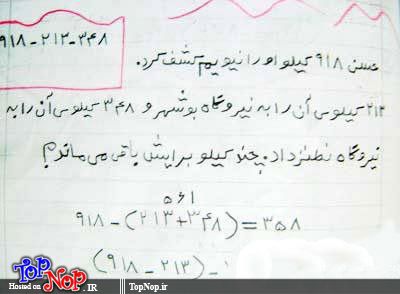 ۹۱۸-۲۱۳-۳۴۸
حسن ۹۱۸ کیلو اورانیویم کشف کرد.
۲۱۳ کیلوی آن را به نیروگاه بوشهر و ۳۴۸ کیلوی آن را به
نیروگاه نطنز داد. چند کیلو برایش باقی می ماند؟
۵۶۱
۹۱۸-(۲۱۳+۳۴۸)=۳۵۸
(۹۱۸-۲۱۳)-
TopNop
Hosted on: TopNop.IR | TopNop.ir